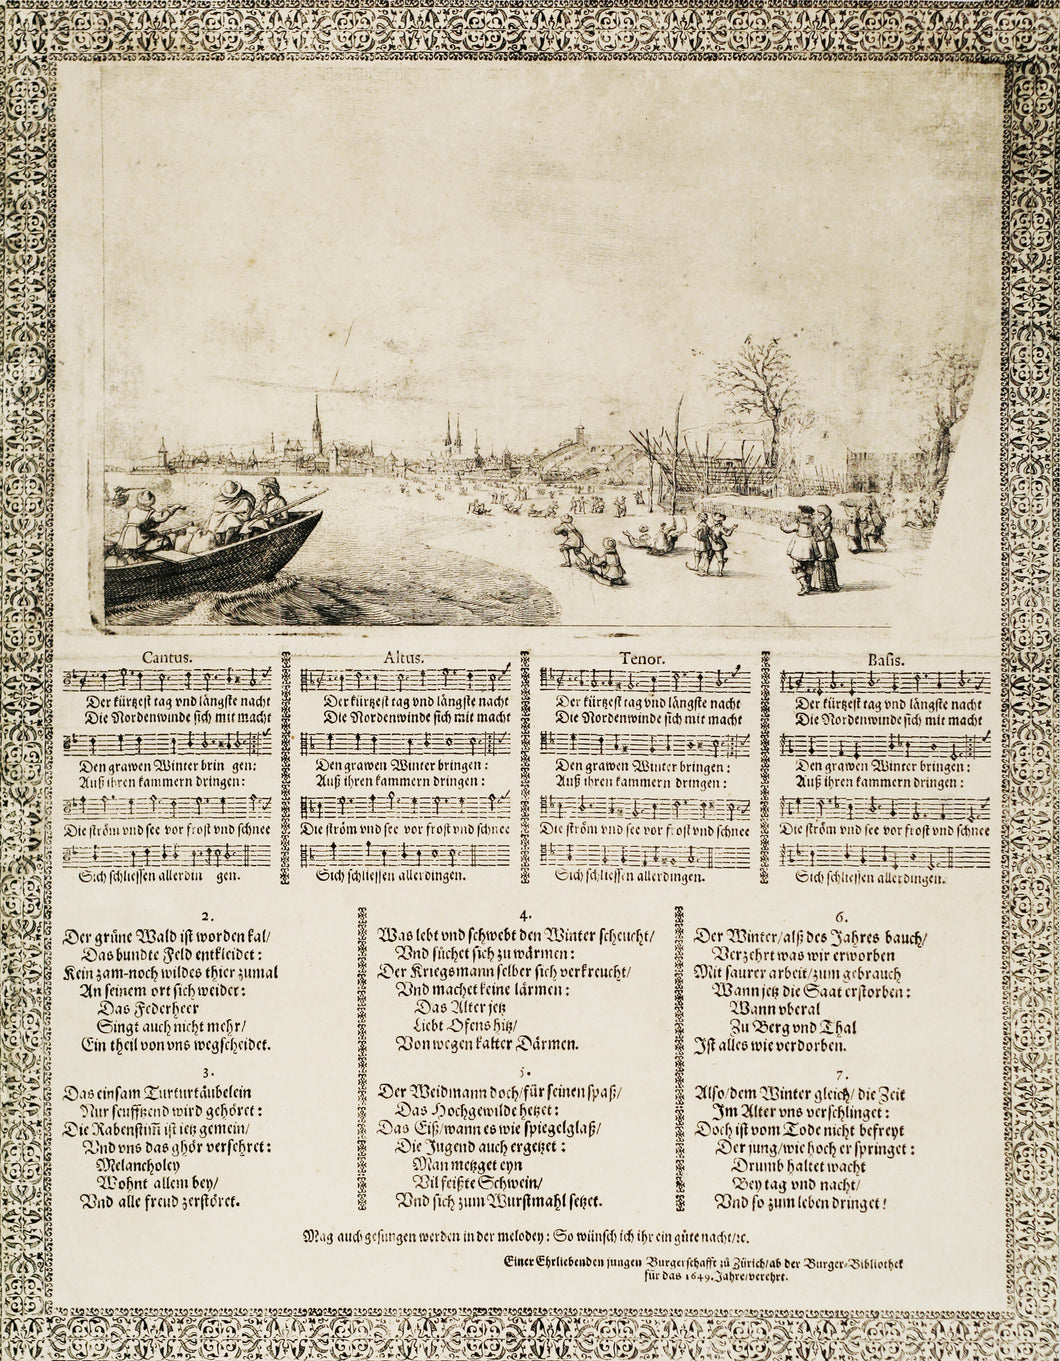 Cantus.
Der kürtzest tag vnd längste nacht
Die Nordenwinde sich mit macht
Den grawen Winter brin gen:
Auß ihren kammern dringen:
Die ström vnd see vor frost vnd schnee
Sich schliessen allerdin gen.
Altus.
Der kürtzest tag vnd längste nacht
Die Nordenwinde sich mit macht
Den grawen Winter bringen:
Auß ihren kammern dringen:
Die ström vnd see vor frost vnd schnee
Sich schliessen allerdingen.
Tenor.
Der kürtzest tag vnd längste nacht
Die Nordenwinde sich mit macht
Den grawen Winter bringen:
Auß ihren kammern dringen:
Die ström vnd see vor frost vnd schnee
Sich schliessen allerdingen.
Basis.
Der kürtzest tag vnd längste nacht
Die Nordenwinde sich mit macht
Den grawen Winter bringen:
Auß ihren kammern dringen:
Die ström vnd see vor frost vnd schnee
Sich schliessen allerdingen.
2.
Der grüne Wald ist worden kal/
Das bundte Feld entkleidet:
Kein zam-noch wildes thier zumal
An seinem ort sich weidet:
Das Federheer
Singt auch nicht mehr/
Ein theil von vns wegscheidet.
3.
Das einsam Turturtäubelein
Nur seufftzend wird gehöret:
Die Rabenstim̃ ist ietz gemein/
Vnd vns das ghör versehret:
Melancholey
Wohnt allem bey/
Vnd alle freud zerstöret.
4.
Was lebt vnd schwebt den Winter scheucht/
Vnd süchet sich zu wärmen:
Der Kriegsmann selber sich verkreucht/
Vnd machet keine lärmen:
Das Alter jetz
Liebt Ofens hitz/
Von wegen kalter Därmen.
5.
Der Weidmann doch/für seinen spaß/
Das Hochgewilde hetzet:
Das Eiß/wann es wie spiegelglaß/
Die Jugend auch ergetzet:
Man metzget eyn
Vil feißte Schwein/
Vnd sich zum Wurstmahl setzet.
6.
Der Winter/alß des Jahres bauch/
Verzehrt was wir erworben
Mit saurer arbeit/zum gebrauch
Wann jetz die Saat erstorben:
Wann vberal
Zu Berg vnd Thal
Ist alles wie verdorben.
7.
Also/dem Winter gleich/die Zeit
Im Alter vns verschlinget:
Doch ist vom Tode nicht befreyt
Der jung/wie hoch er springet:
Drumb haltet wacht
Bey tag vnd nacht/
Vnd so zum leben dringet!
Mag auch gesungen werden in der melodey: So wünsch ich ihr ein güte nacht/ꝛc.
Einer Ehrliebenden jungen Burgerschafft zů Zürich/ab der Burger-Bibliothek
für das 1649. Jahre/verehrt.